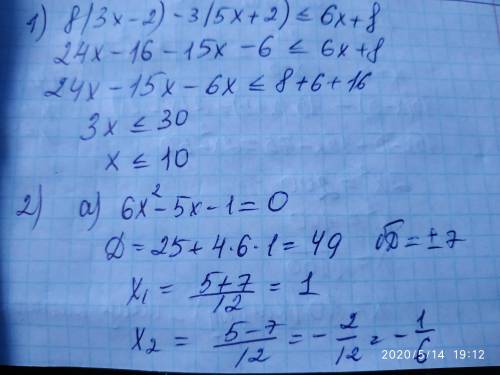 1) 8(3x-2)-3(5x+2) ≤ 6x+8
24x-16-15x-6 ≤ 6x+8
24x-15x-6x ≤ 8+6+16
3x ≤ 30
x ≤ 10
2) a) 6x²-5x-1=0
D=25+4·6·1=49 √D=±7
x₁ = (5+7)/12 = 1
x₂ = (5-7)/12 = -2/12 = -1/6
2020/5/14 19:12